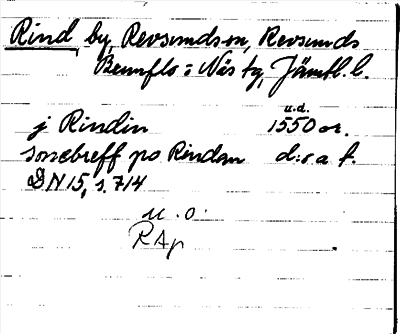 Rind by, Revsundson, Revsunds
Brunflo o Näs tg, Jämtl. l.
u.d.
j Rindin 1550 or.
sonebreff po Rindan d:o a f.
DN 15, s. 714
u. o.
RAp